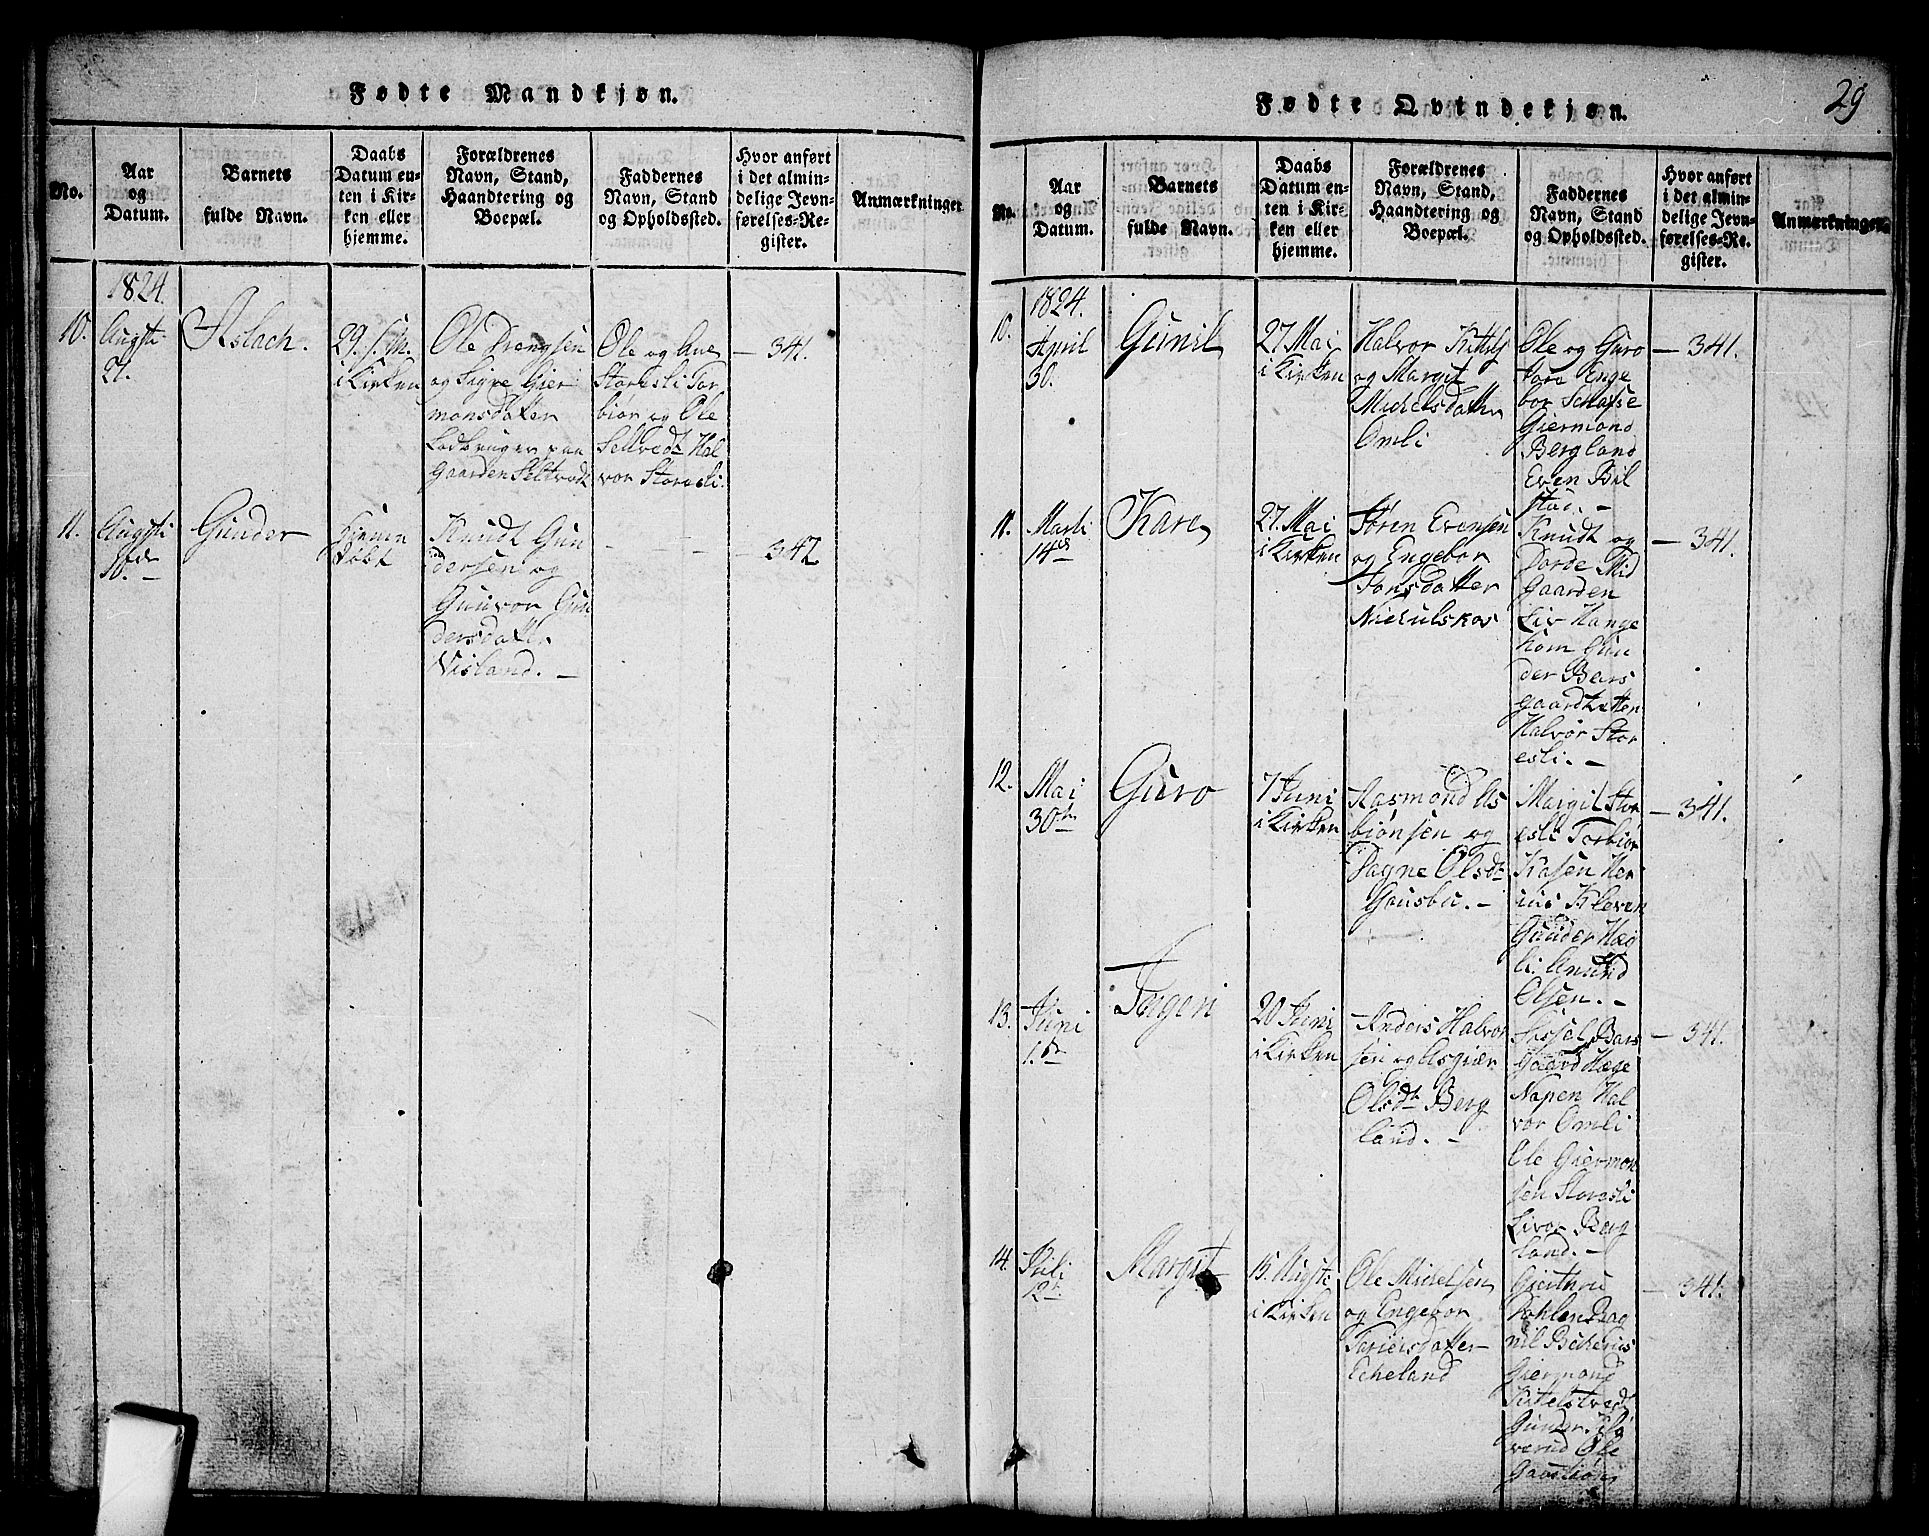 Fødte Mandkjøn.
No.
Aar
og
Datum.
Barnets
fulde Navn.
Daabs
Datum en-
ten i Kir-
ken eller
hjemme.
Forældrenes
Navn, Stand,
Haandtering og
Boepæl.
Faddernes
Navn, Stand
og Opholdssted.
Hvor anført
i det almin-
delige Jevn-
førelses-Re-
gister.
Anmærkninger
1824.
10.
Augsti
21.
Aslach.
29.
i Kirken
Ole Drengsen
og Signe Gier
monsdatter
Ladbruger paa
Gaarden Seltvedt
Ole og Ane
Storesli Tor
biør og Ole
Seltvedt Hal
vor Storesli.
— 341.
11.
Augsti
10de —
Gunder
Hjemme
døbt
Knudt Gun
dersen og
Gunvor Gun
dersdatter
Nisland. —
— — —
— 342
29
Fødte Qvindekjøn.
No.
Aar
og
Datum.
Barnets
fulde Navn.
Daabs
Datum en-
ten i Kir-
ken eller
hjemme.
Forældrenes
Navn, Stand,
Haandtering og
Boepæl.
Faddernes
Navn, Stand
og Opholdssted.
Hvor anført
i det almin-
delige Jevn-
førelses-Re-
gister.
Anmærkninger
1824.
10.
April
30.
Gunil
27. Mai
i Kirken
Halvor Kittels
og Margit
Michelsdatter
Omli
Ole og Guro
Enge
bor
Giermond
Bergland
Even Bil
stad. —
— 341.
11.
Marti
14de
Kare
27. Mai
i Kirken
Søren Evensen
og Engebor
Tonsdatter
Nichulskos
Knudt og
Dorde Mid
gaarden
Liv Hauge
hom Gun
der Bars
gaardtetten
Halvor Stor
esli. —
— 341.
12.
Mai
30te
Guro
7 Juni
i Kirken
Aasmond As
biønsen og
Dagne Olsdt
Gousbu. —
Margit Stor
esli Torbiør
Kasen Her
Kleven
Gunder Hæg
li. Anund
Olsen. —
— 341.
13.
Juni
1te
Tageri
20 Juni
i Kirken
Anders Halvor
sen og Asgier
Olsdt Berg
land. —
Sissel Bars
gaard Hæge
Napen Hal
vor Omli
Ole Giermon
sen Storesli
Livor Berg
land. —
— 341.
14.
Juli
12te
Margit
15. Augsti
i Kirken
Ole Michelsen
og Engebor
Toriersdatter
Echeland
Giertru
Dahlen Rag
nil
Giermond
Kittelstved
Gunder
verud Ole
— 341.